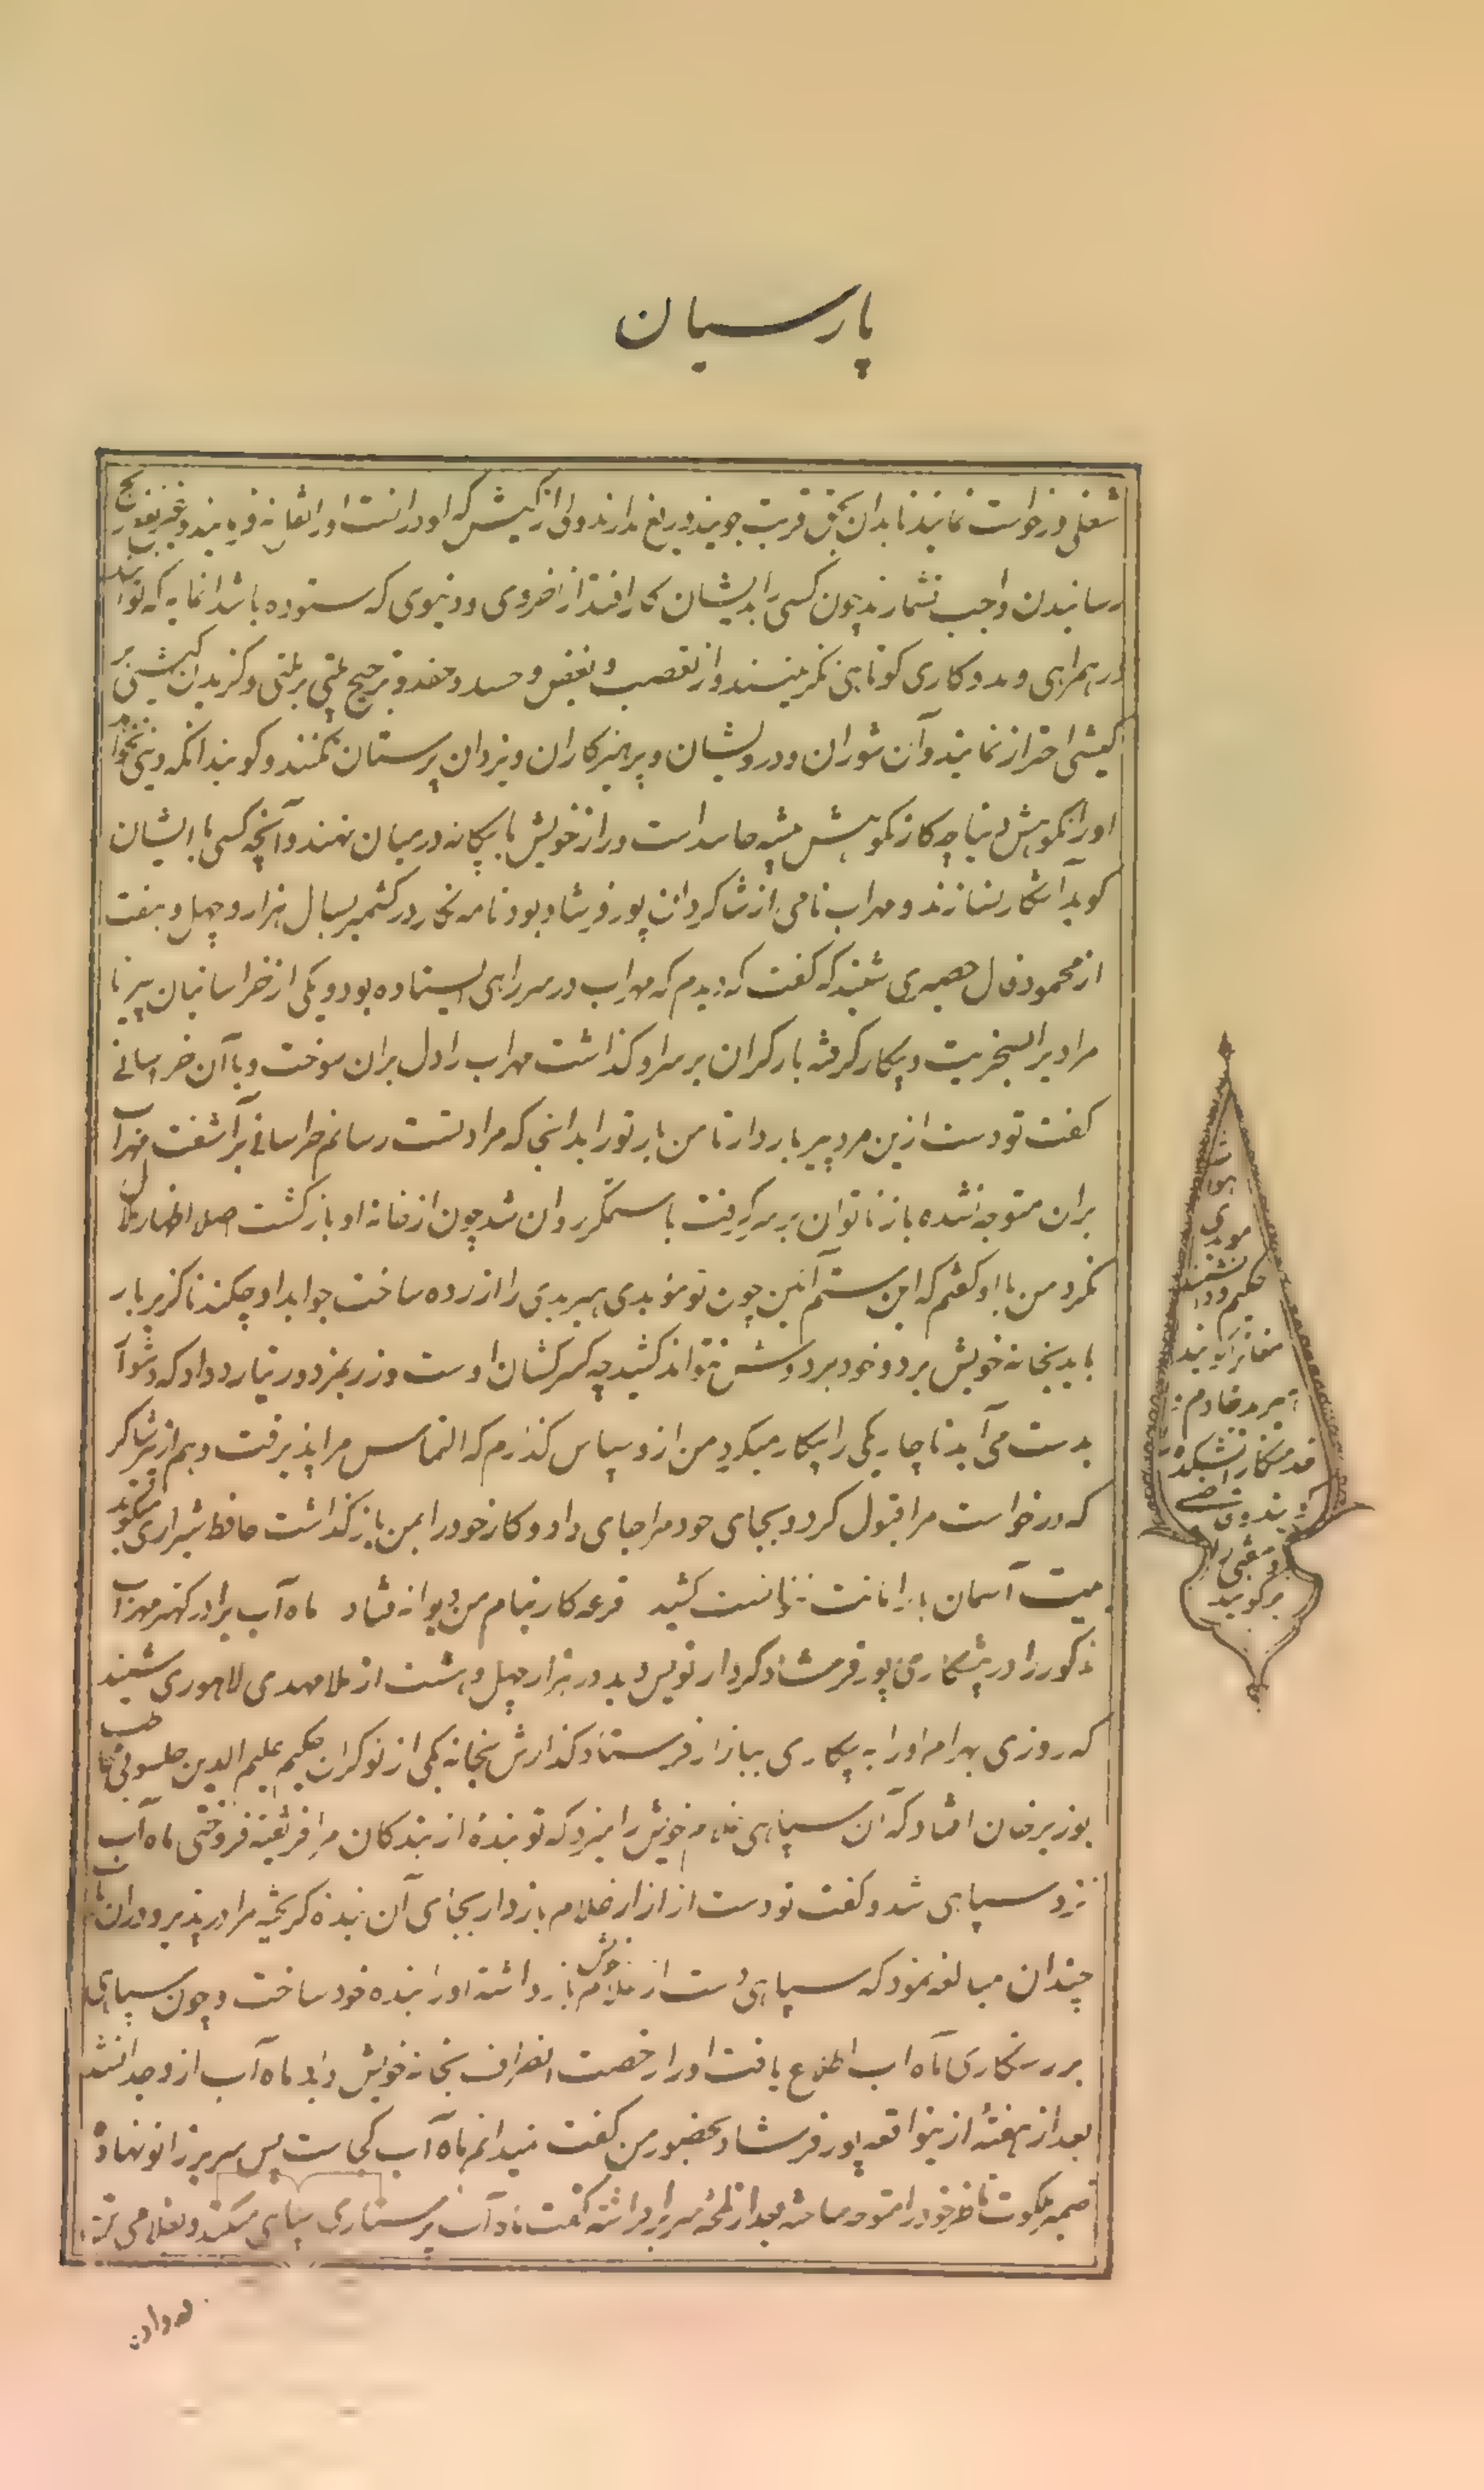 پارسیان
شغلی درخواست نمایند تا بدان بحق قربت جویند دریغ ندارند و او را از کیش که او در انست او را نقل نه فرمایند و غیر نفع رنج
رسانیدن واجب نشمارند چون کسی را بدیشان کار افتد از اخروی و دنیوی که ستوده باشد انمایه که تواند
در همراهی و مددکاری کوتاهی نکرینسند و از تعصب و بغض و حسد و حقد و ترجیح ملتی بر ملتی و کزیدن کیشی بر
کیشی احتراز نمایند و دانشوران و درویشان و پرهیزکاران و یزدان پرستان
اورا نکوهش دنیا چه کار نکوهش پیشه حاسد است و راز خویش با بیکانه در میان ننهند و آنچه کسی با ایشان
کوید آشکار نسازند و مهراب نامی از شاکردان پور فرشاد بود نامه نکار در کشمیر بسال هزار و چهل و هفت
از محمود فال حصیری شنید که کفت که دیدم که مهراب در سر راهی ایستاده بود و یکی از خراسانیان پیر نا
مراد برا بسخریت و بیکار کرفته بار کران بر سر او کذاشت مهراب را دل بران سوخت و با آن خراسانی
کفت تو دست ازین مرد پیر باز دار تا من بار تو را بدانجا که مراد تست رسانم خراسانی برآشفت مهراب
بران متوجه نشده بار از ناتوان بر سر کرفت با ستمکر روان شد چون از خانه او بازکشت اصلا اظهار ملال
نکرد من با او کفتم که این ستم آئین چون تو موبدی هیربدی را ازرده ساخت جواب داد چکند ناکزیر بار
باید بخانه خویش برد و خود بردوش نتواند کشید چه کسر شان اوست و زر بمزدور نیارد داد که دشوار
بدست می آید ناچار یکی را بیکار میکرد من ازو سپاس کذارم که التماس مرا پذیرفت و هم از پیر شاکر
که درخواست مرا قبول کرد و بجای خود مرا جای داد و کار خود را بمن باز کذاشت حافظ شیرازی میکوید
بیت آسمان بار امانت نتوانست کشید   قرعه کار بنام من دیوانه فتاد   ماه آب برادر کهتر مهراب
مذکور را در پیشکاری پور فرشاد کردار نویس دید در هزار چهل و هشت از ملا مهدی لاهوری شنید
که روزی بهرام او را به پیکاری ببازار فرستاد کذارش بخانه یکی از نوکران حکیم علیم الدین مخاطب
بوزیر خان افتاد که آن سپاهی غلام خویش را میزد که تو بندهٔ از بندکان مرا فریفته فروختی ماه آب
نزد سپاهی شد و کفت تو دست از ازار غلام باز دار بجای آن بنده کریخته مرا در پذیر و دران باب
چندان مبالغه نمود که سپاهی دست از غلام خویش باز داشته او را بنده خود ساخت و چون سپاهی
بر رستکاری ماه اب اطلاع یافت او را رخصت انصراف بخانه خویش داد ماه آب ازو جدا نشد
بعد از هفتهٔ ازینواقعه پور فرشاد بحضور من کفت نمیدانم ماه آب کجاست پس سر بر زانو نهاد و
ضمیر ملکوت ناظر خود را متوجه ساخته بعد از لمحهٔ سر برافراشته کفت ماه آب پرستاری سپاهی میکند و بغلامی تن
در داد
حکیم و دانشمند
پیرمرد خادم
خدمتکار آتشکده
برکویند